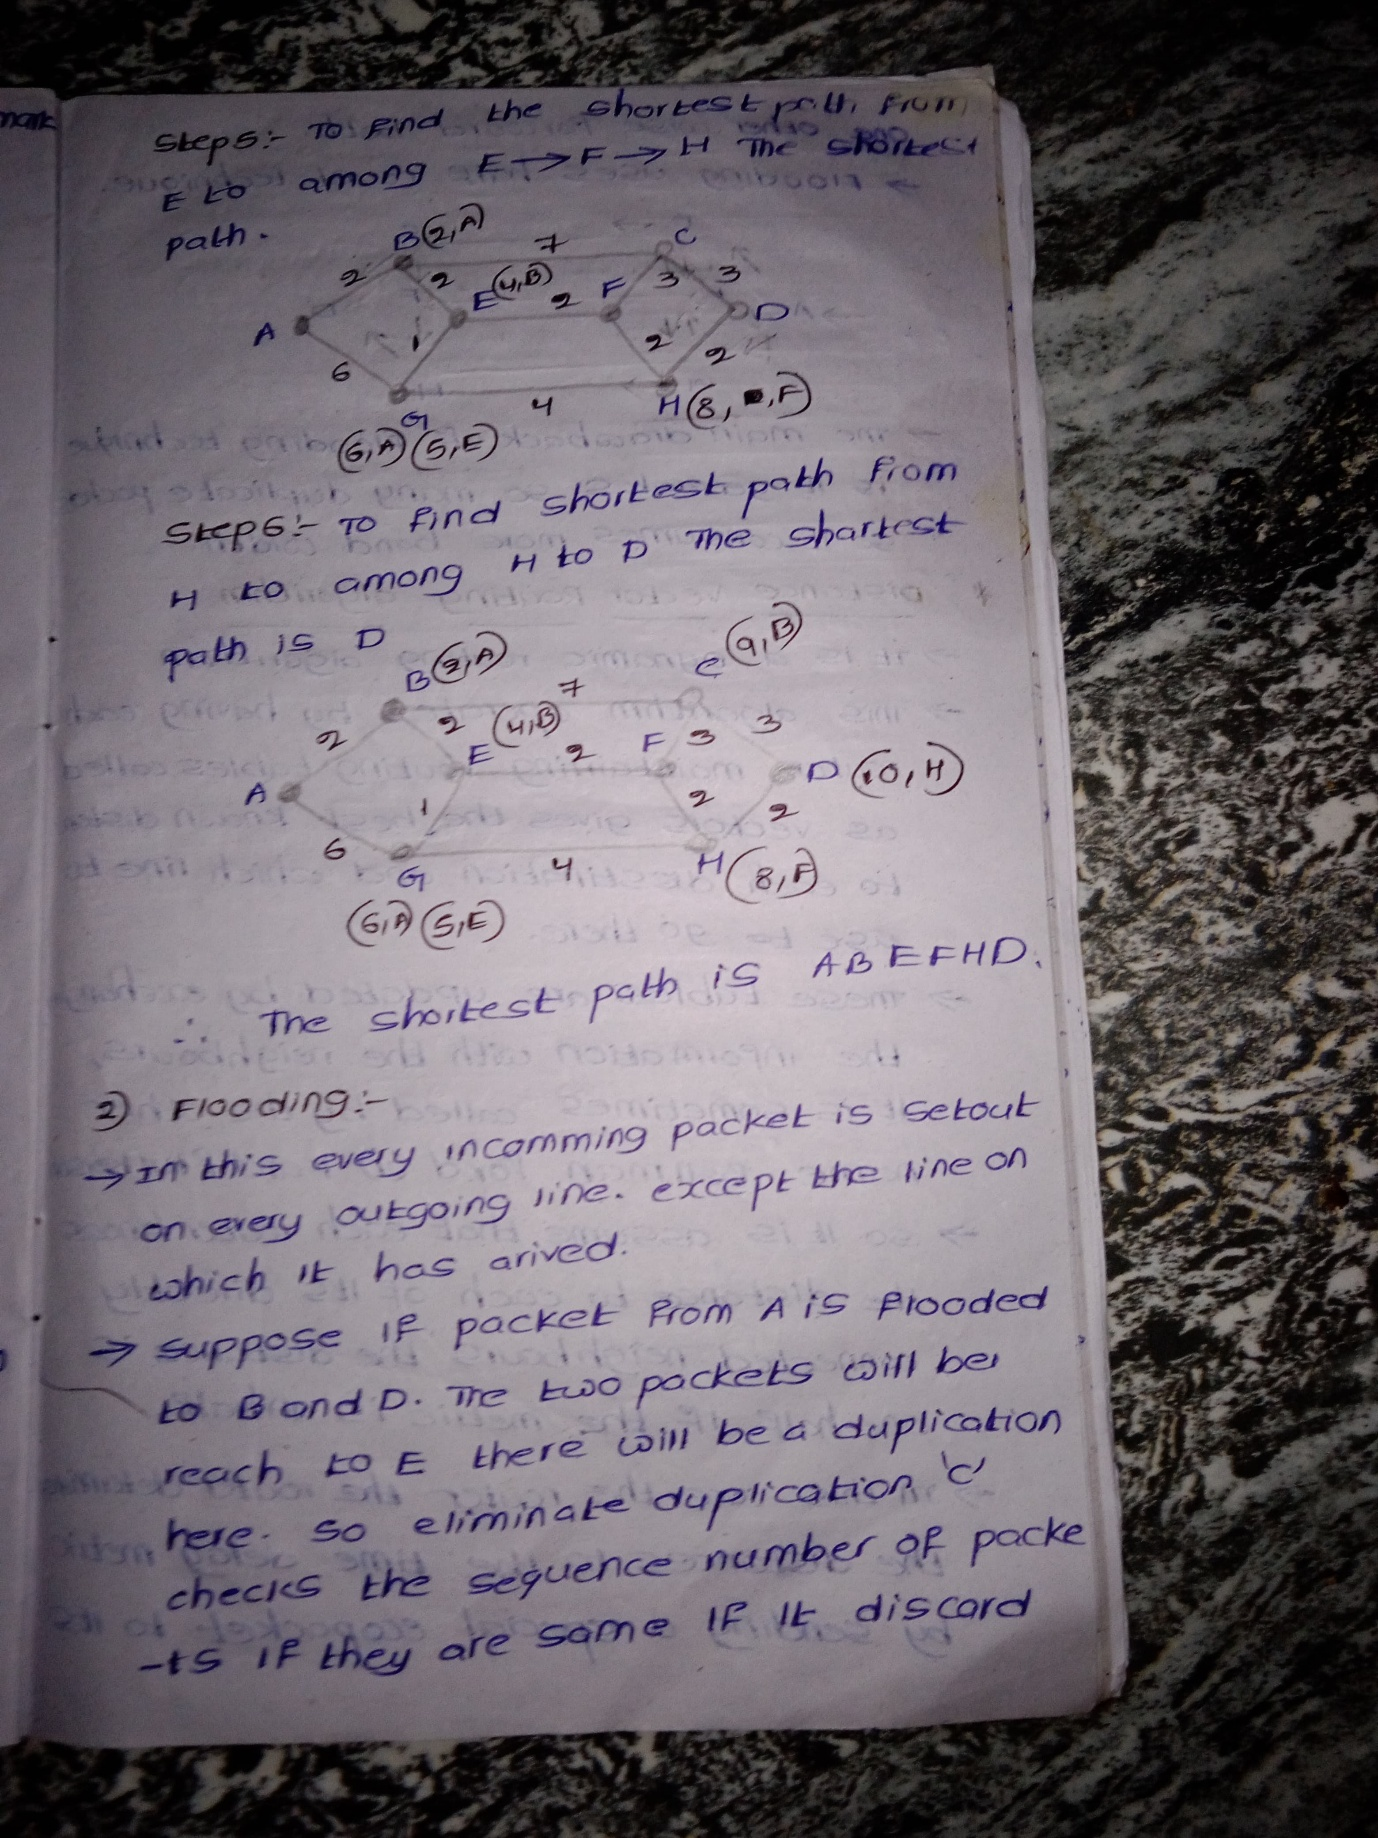 mark
Step5:- To find the shortest path from
E to among E → F → H The shortest
path.
B (2,A) 7 C
2 2 E (4,B) 2 F 3 3
A 1 2 D
6 2
G 4 H (8, ,F)
(6,A) (5,E)
Step6:- To find shortest path from
H to among H to D The shartest
path is D
B (2,A) C (9,B)
7
2 2 (4,B) 3
E 2 F 3
A 1 2 D (10,H)
6 2
G 4 H (8,F)
(6,A) (5,E)
∴ The shortest path is ABEFHD.
2) Flooding:-
→ In this every incomming packet is setout
on every outgoing line. except the line on
which it has arived.
→ suppose if packet from A is flooded
to B and D. The two packets will be
reach to E there will be a duplication
here. so eliminate duplication 'c'
checks the sequence number of packe
-ts if they are same if it discard